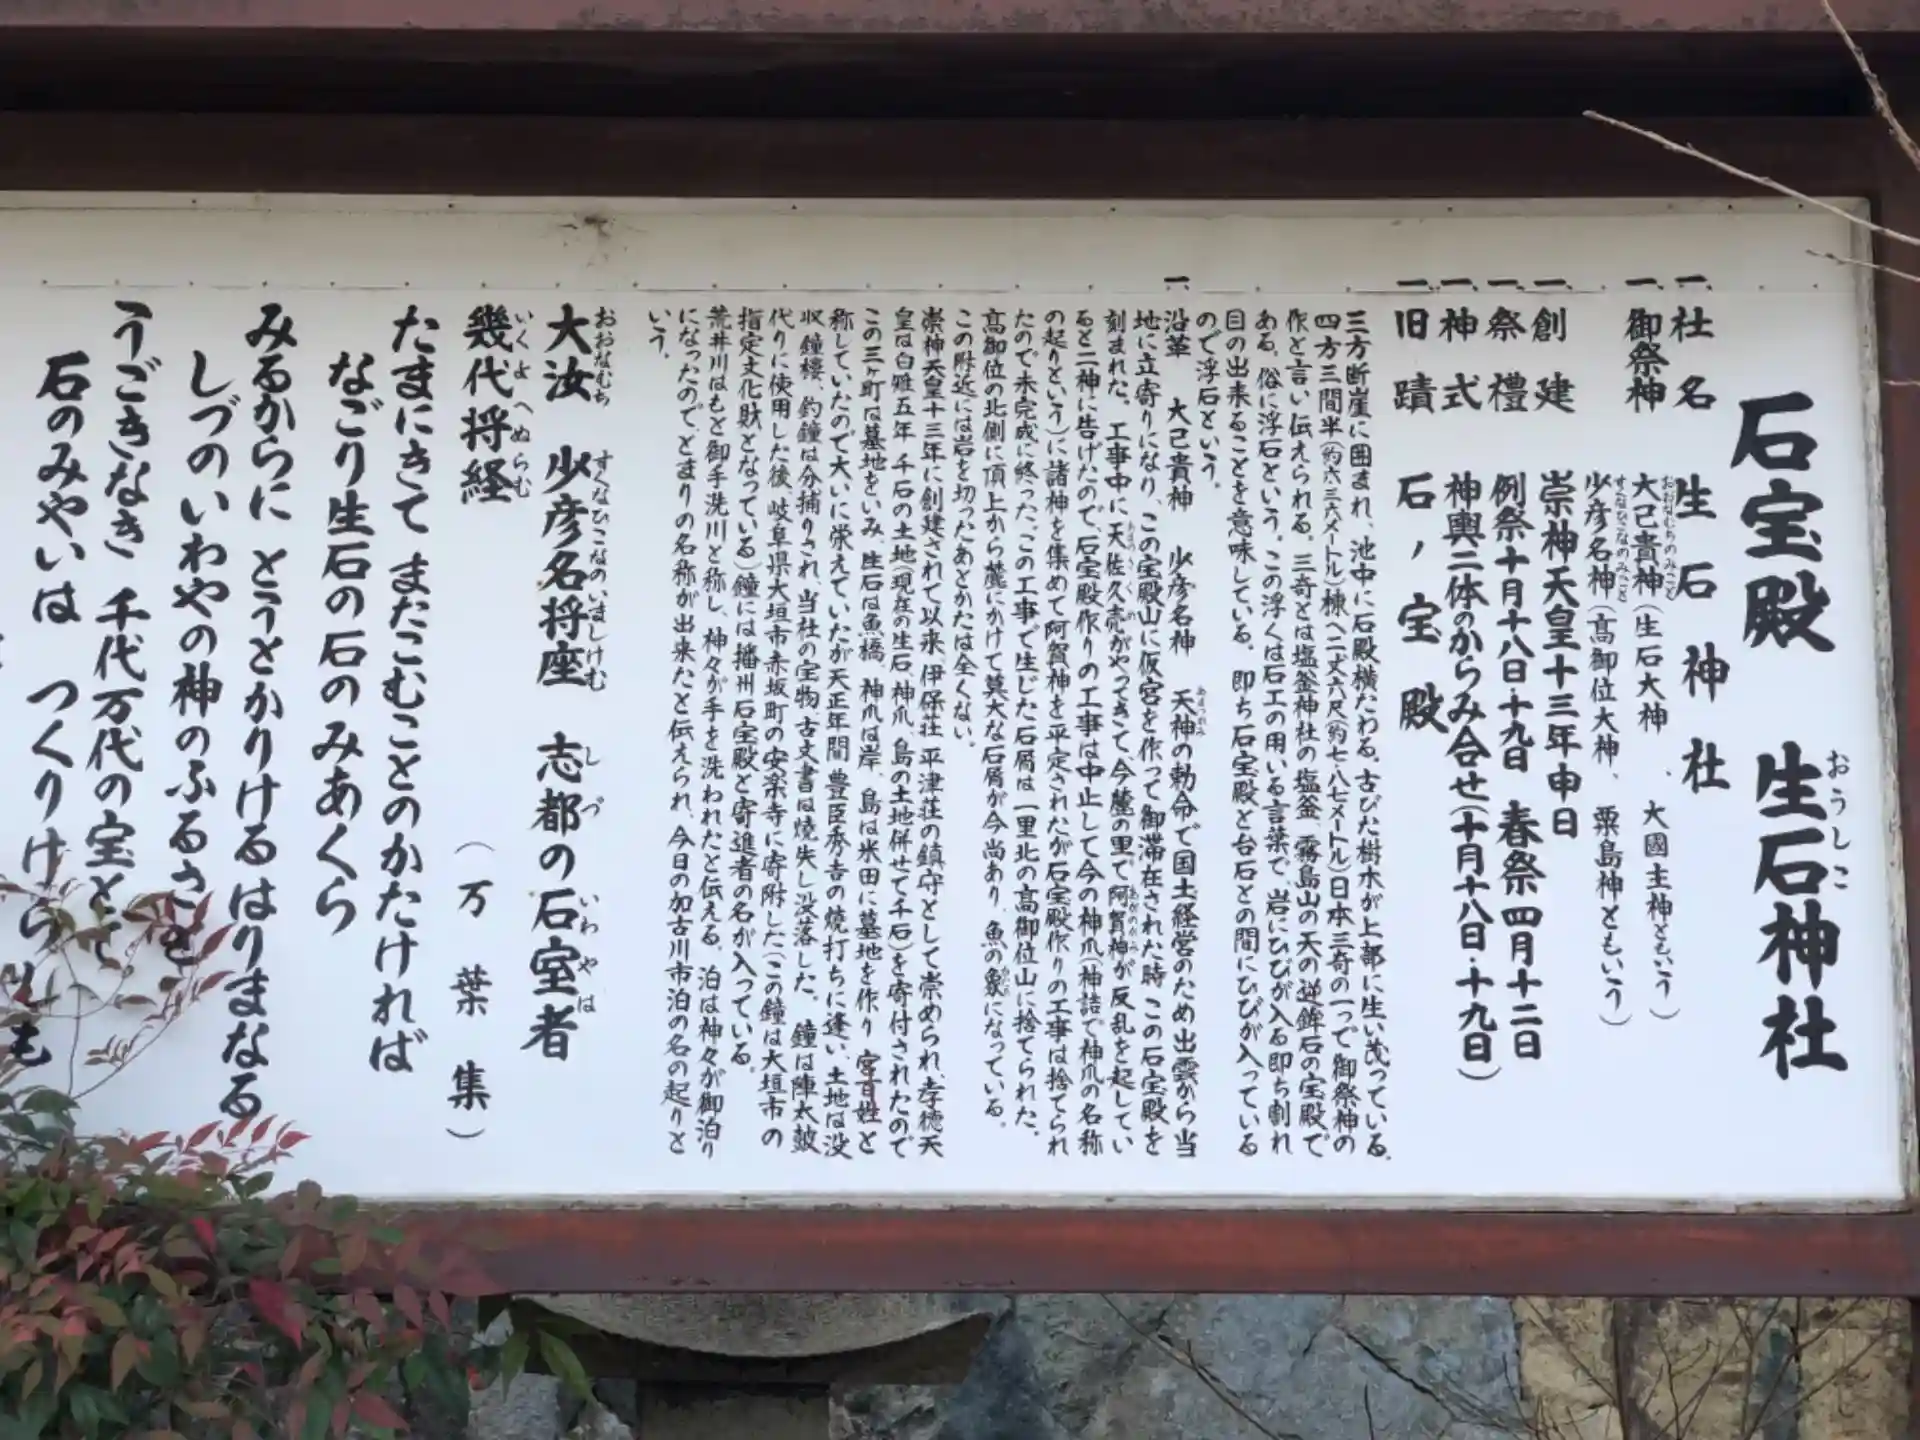 石宝殿 生石神社
おうしこ
一、社名 生石神社
一、御祭神 大己貴神(生石大神、大國主神ともいう)
おおなむちのみこと
少彦名神(高御位大神、粟島神ともいう)
すくなひこなのみこと
一、創建 崇神天皇十三年申日
一、祭禮 例祭十月十八日・十九日 春祭四月十二日
一、神式 神輿二体のからみ合せ(十月十八日・十九日)
一、旧蹟 石ノ宝殿
三方断崖に囲まれ、池中に石殿横たわる。古びた樹木が上部に生い茂っている。
四方三間半(約六・三六メートル)棟へ二丈六尺(約七・八七メートル)日本三奇の一つで御祭神の
作と言い伝えられる。三奇とは塩釜神社の塩釜、霧島山の天の逆鉾石の宝殿で
ある。俗に浮石という。この浮くは石工の用いる言葉で、岩にひびが入る即ち割れ
目の出来ることを意味している。即ち石宝殿と台石との間にひびが入っている
ので浮石という。
一、沿革 大己貴神 少彦名神 天神の勅命で国土経営のため出雲から当
地に立寄りになり、この宝殿山に仮宮を作って御滞在された時この石宝殿を
刻まれた。工事中に天佐久売がやってきて、今麓の里で阿賀神が反乱を起してい
ると二神に告げたので、石宝殿作りの工事は中止して今の神爪(神詰で神爪の名称
の起りという)に諸神を集めて阿賀神を平定されたが石宝殿作りの工事は捨てられ
たので未完成に終った。この工事で生じた石屑は一里北の高御位山に捨てられた。
高御位の北側に頂上から麓にかけて莫大な石屑が今尚あり、魚の象になっている。
この附近には岩を切ったあとかたは全くない。
崇神天皇十三年に創建されて以来、伊保荘、平津荘の鎮守として崇められ、孝徳天
皇は白雉五年 千石の土地(現在の生石、神爪、島の土地併せて千石)を寄付されたので
この三ヶ町は墓地をいみ、生石は魚橋、神爪は岸、島は米田に墓地を作り 宮百姓と
称していたので大いに栄えていたが天正年間 豊臣秀吉の焼打ちに逢い、土地は没
収、鐘楼、釣鐘は分捕りされ、当社の宝物、古文書は焼失し没落した。鐘は陣太鼓
代りに使用した後、岐阜県大垣市赤坂町の安楽寺に寄附した(この鐘は大垣市の
指定文化財となっている)鐘には播州石宝殿と寄進者の名が入っている。
荒井川はもと御手洗川と称し、神々が手を洗われたと伝える。泊は神々が御泊り
になったのでとまりの名称が出来たと伝えられ、今日の加古川市泊の名の起りと
いう。
大汝 少彦名将座 志都の石室者
おおなむち すくなひこなのいましけむ しづ いわやは
幾代将経 (万葉集)
いくよへぬらむ
たまにきて またこむことのかたければ
なごり生石の石のみあくら
みるからに とうとかりけるはりまなる
しづのいわやの神のふるさと
うごきなき 千代万代の宝とて
石のみやいは つくりけらしも